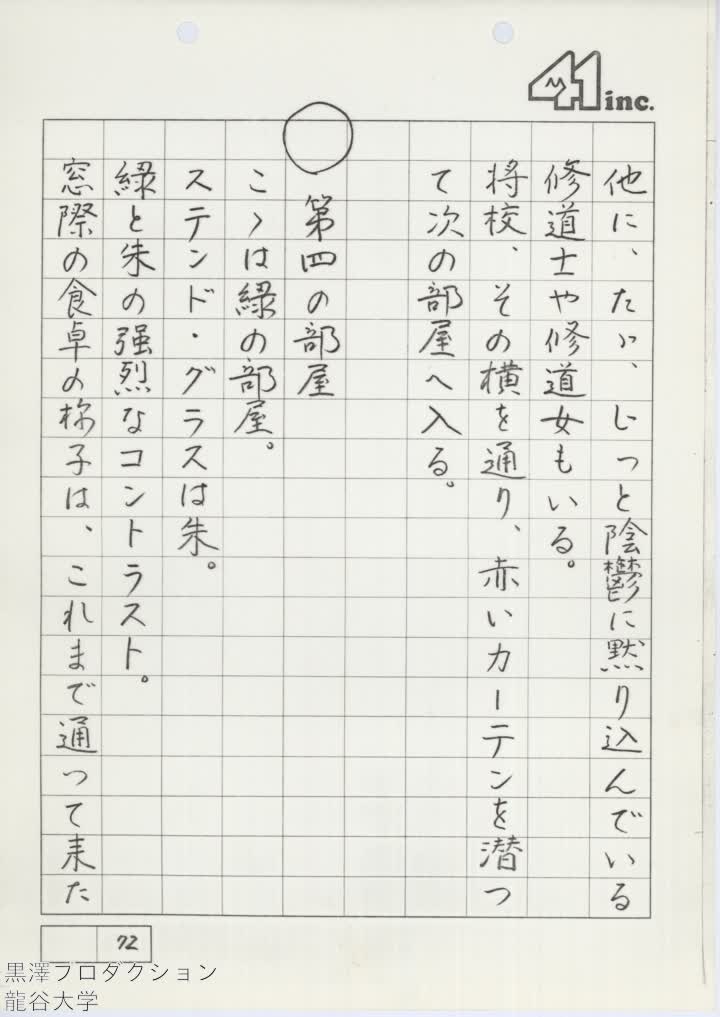 41 inc.
他に、たゞ、じっと陰鬱に黙り込んでいる
修道士や修道女もいる。
将校、その横を通り、赤いカーテンを潜っ
て次の部屋へ入る。
○ 第四の部屋
こゝは緑の部屋。
ステンド・グラスは朱。
緑と朱の強烈なコントラスト。
窓際の食卓の椅子は、これまで通って来た
72
黒澤プロダクション
龍谷大学